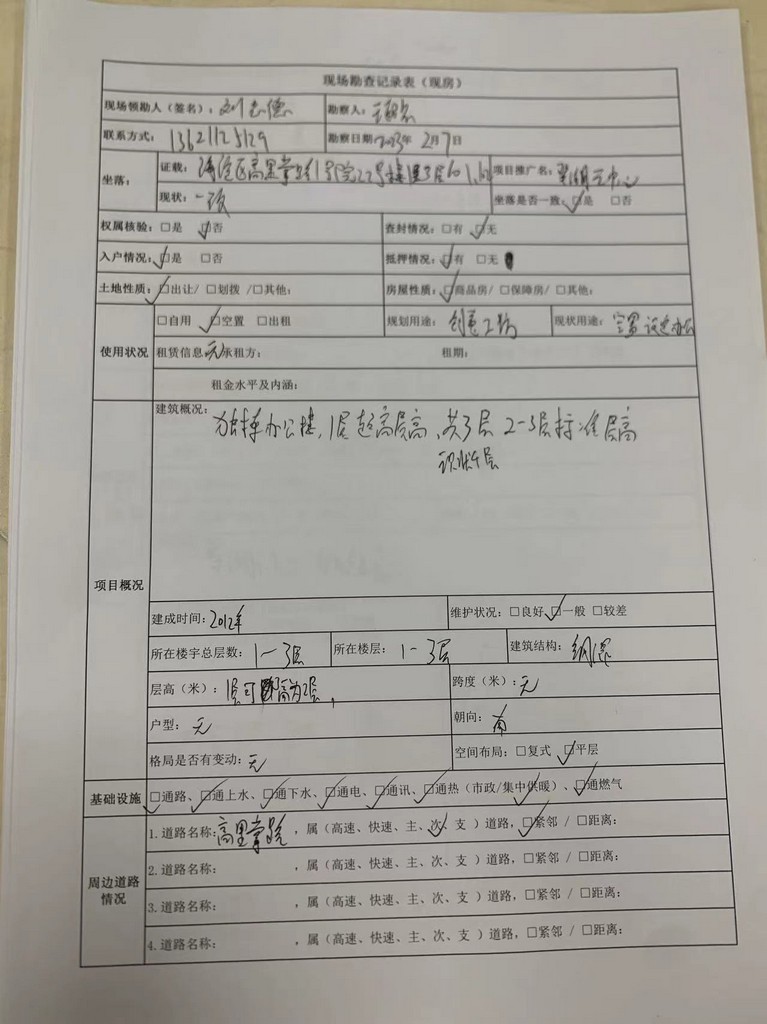 现场勘查记录表（现房）
现场领勘人（签名）：刘志德 勘察人：
联系方式：13621125129 勘察日期：2023年 2月7日
坐落： 证载：海淀区高里掌路1号院22号楼1至3层101 项目推广名：翠湖云中心
现状：一致 坐落是否一致：☑是 □否
权属核验：□是 ☑否 查封情况：□有 ☑无
入户情况：☑是 □否 抵押情况：☑有 □无
土地性质：☑出让/ □划拨 /□其他： 房屋性质：☑商品房/ □保障房/ □其他：
使用状况 □自用 ☑空置 □出租 规划用途： 现状用途：空置 办公
租赁信息：无 承租方： 租期：
租金水平及内涵：
项目概况 建筑概况：独栋办公楼，1层超高层高、共3层 2-3层标准层高
现状4层
建成时间：2012年 维护状况：□良好 ☑一般 □较差
所在楼宇总层数：1-3层 所在楼层：1-3层 建筑结构：钢混
层高（米）：1层可隔高为2层， 跨度（米）：无
户型：无 朝向：南
格局是否有变动：无 空间布局：□复式 ☑平层
基础设施 ☑通路、☑通上水、☑通下水、☑通电、☑通讯、☑通热（市政/集中供暖）、☑通燃气
周边道路情况 1.道路名称：高里掌路，属（高速、快速、主、次、支 ）道路，☑紧邻 / □距离：
2.道路名称： ，属（高速、快速、主、次、支 ）道路，□紧邻 / □距离：
3.道路名称： ，属（高速、快速、主、次、支 ）道路，□紧邻 / □距离：
4.道路名称： ，属（高速、快速、主、次、支 ）道路，□紧邻 / □距离：